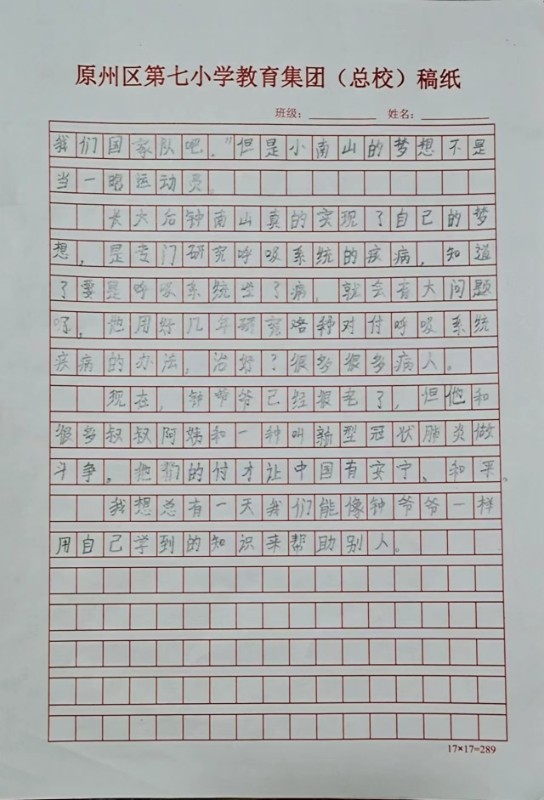 原州区第七小学教育集团（总校）稿纸
班级：姓名：
我们国家队吧。”但是小南山的梦想不是
当一跑运动员。
长大后钟南山真的实现了自己的梦
想，是专门研究呼吸系统的疾病，知道
了要是呼吸系统坐了病，就会有大问题
呀，他用好几年研究各种对付呼吸系统
疾病的办法，治好了很多很多病人。
现在，钟爷爷已经很老了，但他和
很多叔叔阿姨和一种叫新型冠状肺炎做
斗争。他们的付才让中国有安宁、和平。
我想总有一天我们能像钟爷爷一样
用自己学到的知识来帮助别人。
17×17=289